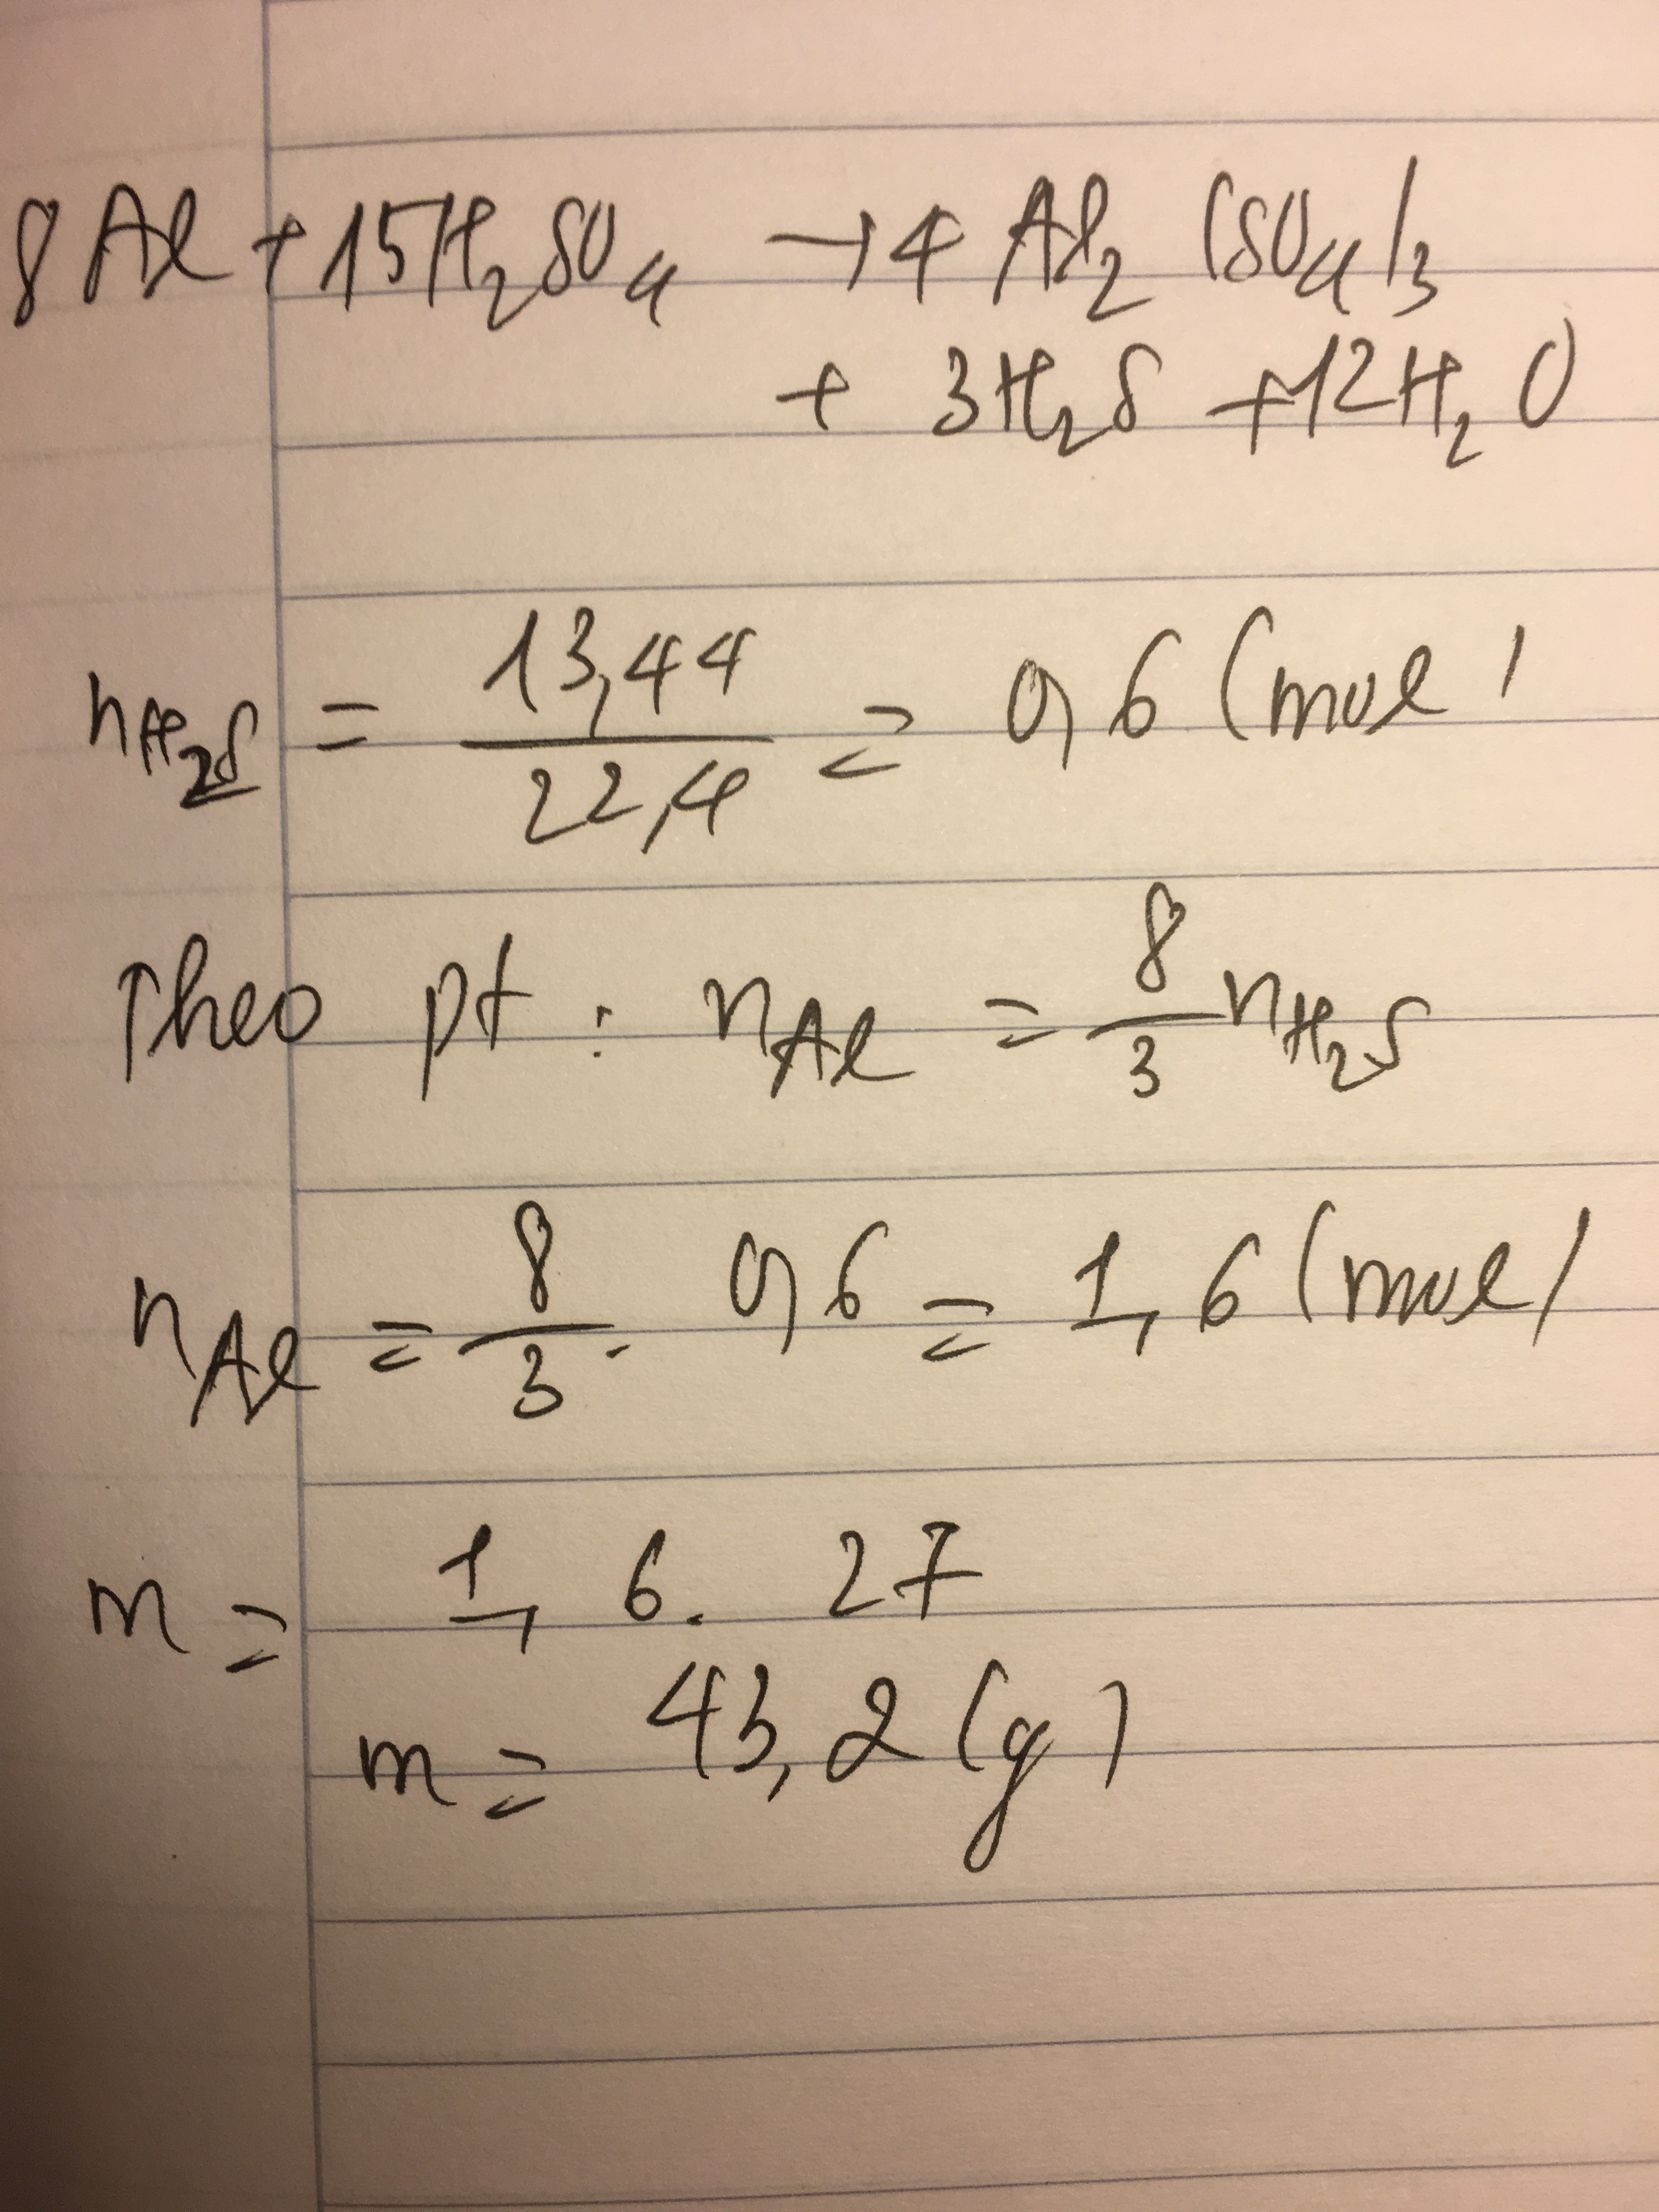 8 Al + 15 H₂SO₄ → 4 Al₂ (SO₄)₃
+ 3 H₂S + 12 H₂O
nH₂S = 13,44 / 22,4 = 0,6 (mol)
Theo pt : nAl = 8/3 nH₂S
nAl = 8/3 . 0,6 = 1,6 (mol)
m = 1,6 . 27
m = 43,2 (g)